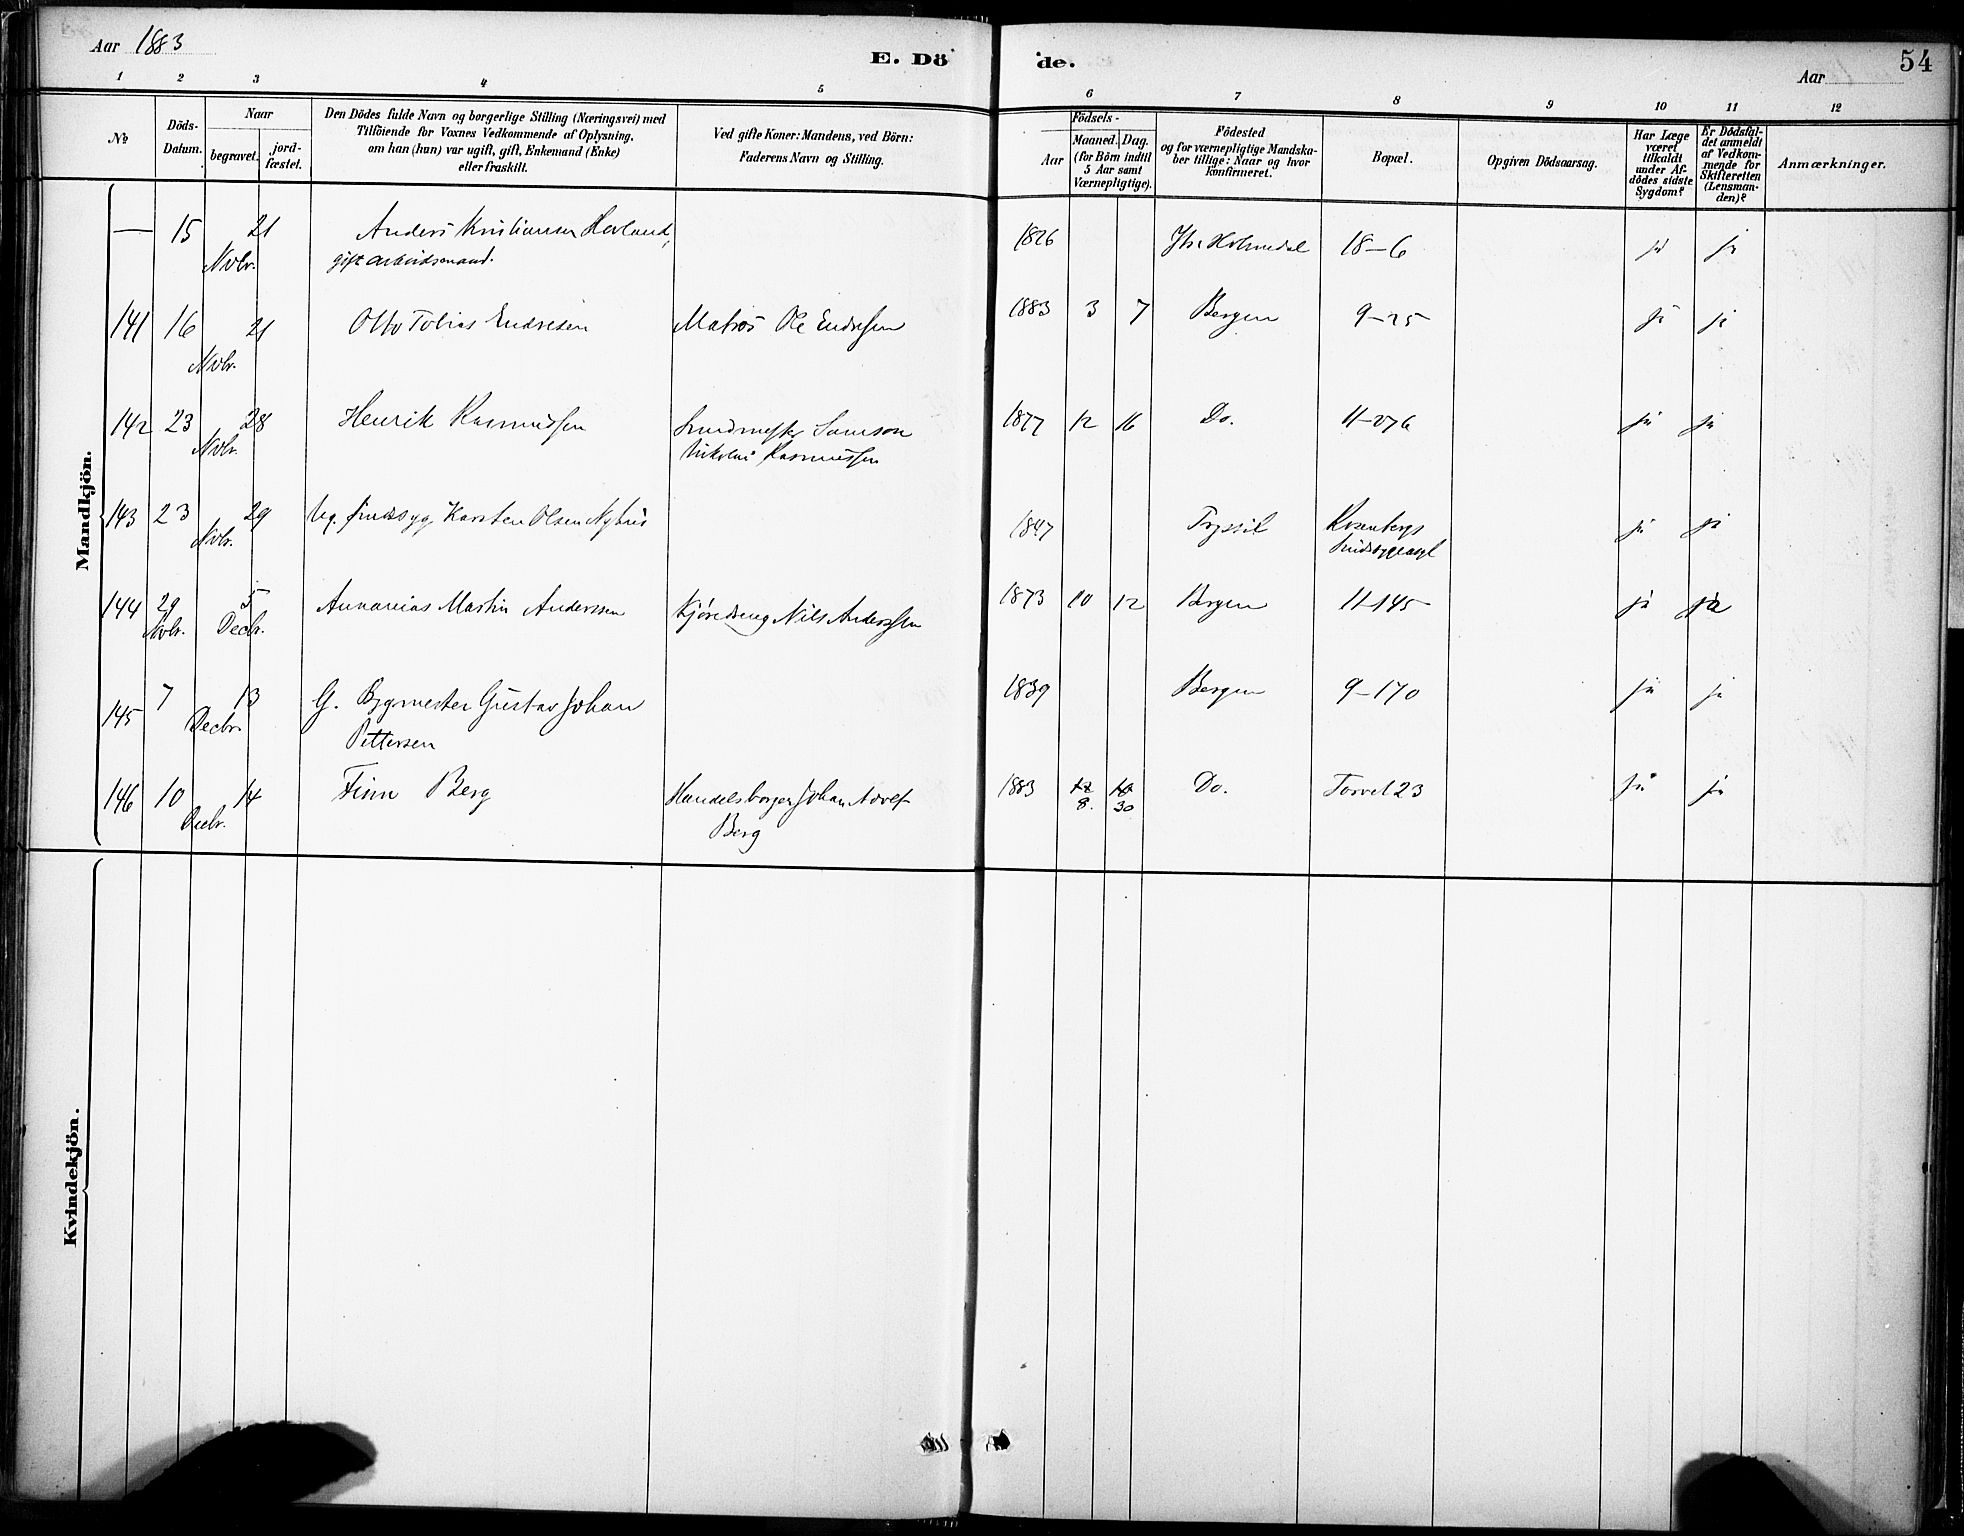 Aar 1883
E. Dö de.
Aar
54
1 2 3 4 5 6 7 8 9 10 11 12
№
Döds-
Datum.
Naar
begravet.
jord-
fæstet.
Den Dödes fulde Navn og borgerlige Stilling (Næringsvei) med
Tilföiende for Voxnes Vedkommende af Oplysning,
om han (hun) var ugift, gift, Enkemand (Enke)
eller fraskilt.
Ved gifte Koner: Mandens, ved Börn:
Faderens Navn og Stilling.
Födsels-
Aar
Maaned. Dag.
(for Börn indtil
5 Aar samt
Værnepligtige).
Födested
og for værnepligtige Mandska-
ber tillige: Naar og hvor
konfirmeret.
Bopæl.
Opgiven Dödsaarsag.
Har Læge
været
tilkaldt
under Af-
dödes sidste
Sygdom?
Er Dödsfal-
det anmeldt
af Vedkom-
mende for
Skifteretten
(Lensman-
den)?
Anmærkninger.
Mandkjön.
— 15 21 Anders Kristiansen Hovland, 1826 Holmedal 18–6 ja ja
Nvbr. gift Arbeidsmand.
141 16 21 Otto Tobias Endresen Matros Ole Endresen 1883 3 7 Bergen 9–25 ja ja
Nvbr.
142 23 28 Henrik Rasmussen Samson 1877 12 16 Do. 11–276 ja ja
Nvbr. Nikolai Rasmussen
143 23 29 Ug. Sindssyg Karsten Olsen Nyhus 1847 Trysil Rosenbergs ja ja
Nvbr. Sindssygeasyl
144 29 5 Annanias Martin Anderssen Nils Anderssen 1873 10 12 Bergen 11–145 ja ja
Nvbr. Decbr.
145 7 13 G. Bygmester Gustav Johan 1839 Bergen 9–170 ja ja
Decbr. Pettersen
146 10 14 Finn Berg Handelsborger Johan Adolf 1883 12 10 Do. Torvet 23 ja ja
Decbr. Berg 8. 30
Kvindekjön.